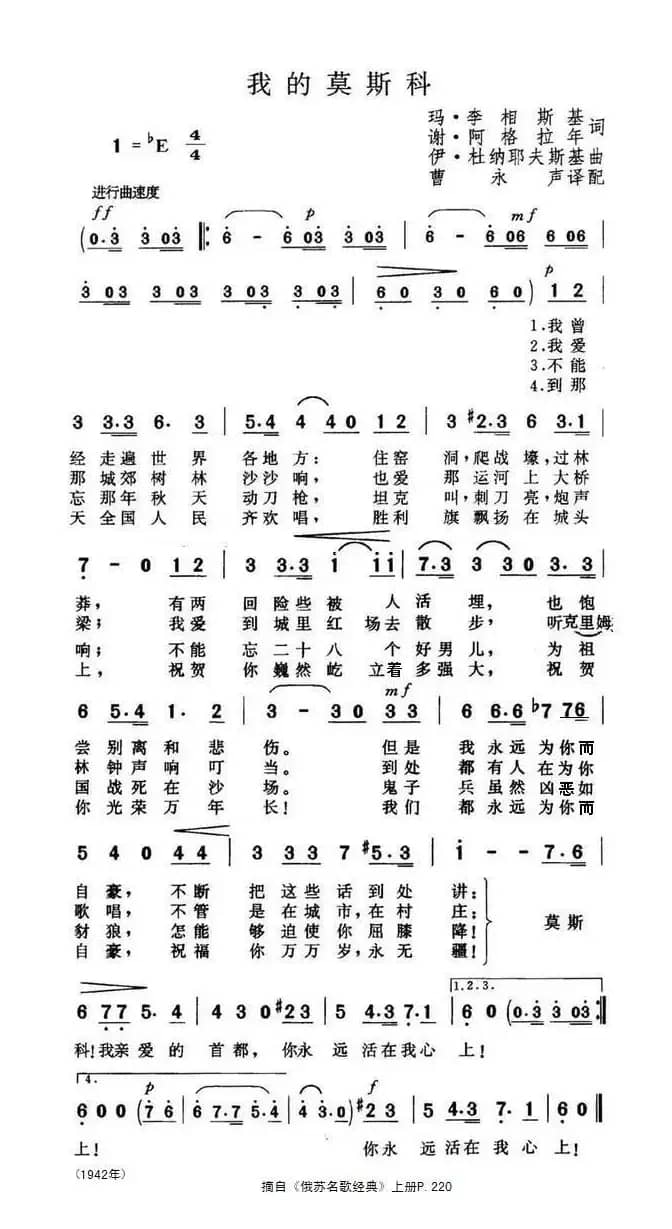 我的莫斯科
玛·李相斯基
谢·阿格拉年 词
伊·杜纳耶夫斯基 曲
曹永声 译配
1 = ♭E 4/4
进行曲速度
ff p mf
(0·3 3 03 ‖: 6 - 6 03 3 03 | 6 - 6 06 6 06 |
p
3 03 3 03 3 03 3 03 | 6 0 3 0 6 0) 1 2 |
1.我曾
2.我爱
3.不能
4.到那
3 3·3 6· 3 | 5·4 4 40 12 | 3 #2·3 6 3·1 |
经走遍世界 各地方: 住窑 洞,爬战壕,过林
那城郊树林 沙沙响, 也爱 那运河上大桥
忘那年秋天 动刀枪, 坦克 叫,刺刀亮,炮声
天全国人民 齐欢唱, 胜利 旗飘扬在城头
7 - 0 12 | 3 3·3 i ii | 7·3 3 30 3·3 |
莽, 有两 回险些被 人活埋, 也饱
梁; 我爱 到城里红 场去散步, 听克里姆
响; 不能 忘二十八 个好男儿, 为祖
上, 祝贺 你巍然屹 立着多强大, 祝贺
mf
6 5·4 1· 2 | 3 - 30 33 | 6 6·6 ♭7 76 |
尝别离和悲 伤。 但是 我永远为你而
林钟声响叮 当。 到处 都有人在为你
国战死在沙 场。 鬼子 兵虽然凶恶如
你光荣万年 长! 我们 都永远为你而
5 4 0 44 | 3 33 7 #5·3 | i - - 7·6 |
自豪, 不断 把这些话到处 讲:
歌唱, 不管 是在城市,在村 庄: 莫斯
豺狼, 怎能 够迫使你屈膝 降!
自豪, 祝福 你万万岁,永无 疆!
1.2.3.
6 77 5· 4 | 4 3 0 #23 | 5 4·3 7·1 | 6 0 (0·3 3 03 :‖
科!我亲爱的 首都, 你永 远活在我心 上!
4.
p f
6 0 0 (7 6 | 6 7·7 5·4 | 4 3·0) #2 3 | 5 4·3 7· 1 | 6 0 ‖
上! 你永 远活在我心上!
(1942年)
摘自《俄苏名歌经典》上册P. 220